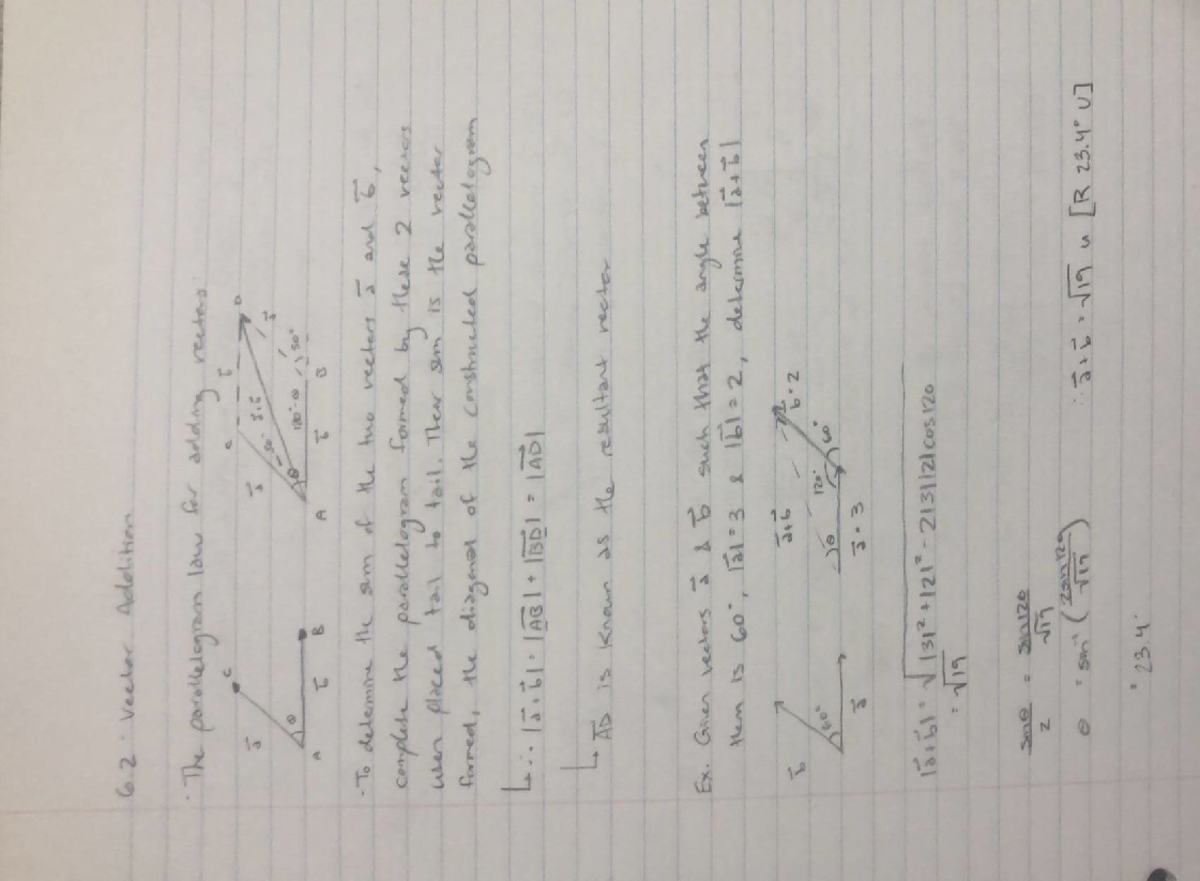 6.2: Vector Addition
· The parallelogram law for adding vectors:
a⃗ C
θ
A b⃗ B
a⃗ C b⃗ D
θ
A b⃗ B
· To determine the sum of the two vectors a⃗ and b⃗,
complete the parallelogram formed by these 2 vectors
when placed tail to tail. Their sum is the vector
formed, the diagonal of the constructed parallelogram
↳ ∴ |a⃗+b⃗| = |AB| + |BD| = |AD|
↳ AD is known as the resultant vector
Ex. Given vectors a⃗ & b⃗ such that the angle between
them is 60°, |a⃗|=3 & |b⃗|=2, determine |a⃗+b⃗|
b⃗ 60° a⃗
a⃗+b⃗ b = 2
θ 120° 60°
a⃗ = 3
|a⃗+b⃗| = √|3|²+|2|²-2|3||2|cos120
= √19
sinθ/2 = sin120/√19
θ = sin⁻¹(2sin120/√19)
= 23.4°
∴ a⃗+b⃗ = √19 u [R 23.4° U]